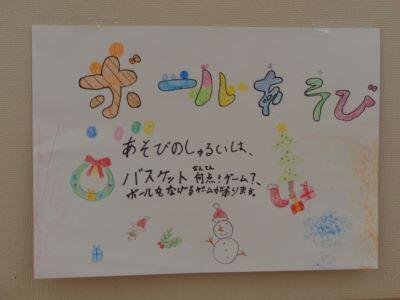 ボールあそび
あそびのしゅるいは、
バスケット 何点!ゲーム?、
なんてん
ボールをなげるゲームがあります。